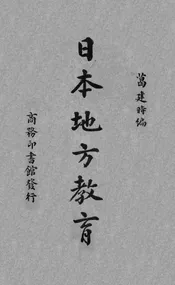 葛建時編
日本地方教育
商務印書館發行